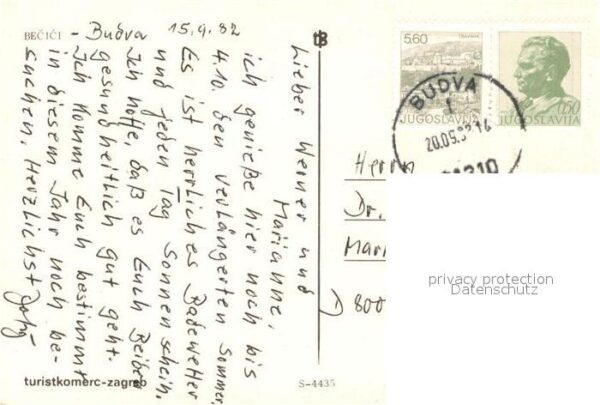 BEČIĆI
- Budva 15.9.82
Lieber Werner und
Marianne,
ich genieße hier noch bis
4.10. den verlängerten Sommer.
Es ist herrliches Badewetter
und jeden Tag Sonnenschein.
Ich hoffe, daß es Euch Beiden
gesundheitlich gut geht.
Ich komme Euch bestimmt
in diesem Jahr noch be-
suchen. Herzlichst
turistkomerc-zagreb
S-4435
5.60
TRAVNIK
JUGOSLAVIJA
0.50
JUGOSLAVIJA
BUDVA
1
20.09.82 16
Herrn
Dr.
Mari
D 800
privacy protection
Datenschutz